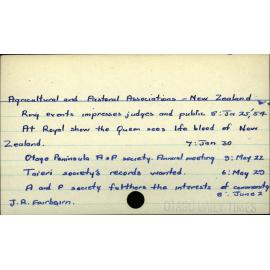 Agricultural and Pastoral Associations - New Zealand
Ring events impresses judges and public 8: Ja 25, '54
At Royal show the Queen sees life blood of New
Zealand. 7: Jan 30
Otago Peninsula A & P society. Annual meeting 3: May 22
Taieri society's records wanted. 6: May 29
A and P society furthers the interests of community
8: June 2
J.R. Fairbairn.